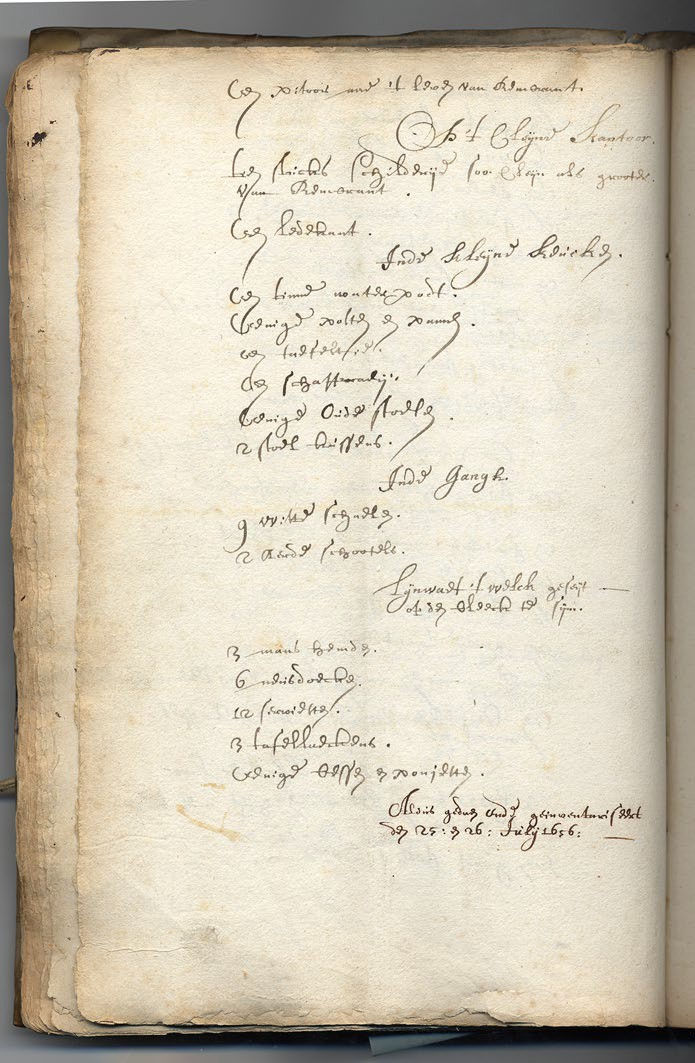 Een pitoor nae 't leven van Rembrant.
Op 't Cleyne Kantoor.
Tien stucks schilderije soo cleijn als grooter
van Rembrant.
Een ledekant.
Inde Kleyne Keucken.
Een tinne waterpodt.
Eenige potten en pannen.
een taefeltie.
Een schafferadij.
Eenige Oude stoelen.
2 stoel kussens.
Inde Gangh.
9 witte schaelen.
2 Aerde schootels.
Lijnwaet 't welck geseijt
op den bleeck te sijn.
3 mans hemden.
6 neusdoecken.
12 servietten.
3 tafellaeckens.
Eenige beffen en ponjetten.
Aldus gedaen ende geinventariseert
den 25: en 26: July 1656: